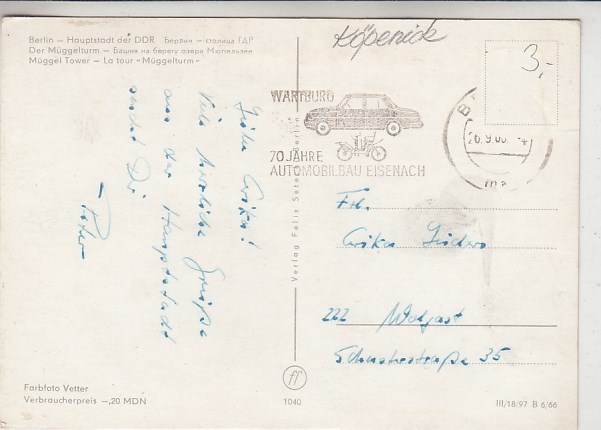 Berlin — Hauptstadt der DDR Берлин — столица ГДР
Der Müggelturm — Башня на берегу озера Мюггельзее
Müggel Tower — La tour "Müggelturm"
Köpenick
3,-
WARTBURG
70 JAHRE
AUTOMOBILBAU EISENACH
Liebe Erika!
Viele herzliche Grüße
aus der Hauptstadt
sendet Dir
— Peter
Verlag Felix Setecki, Berlin
Frl.
Erika
222 Wolgast
Schusterstraße 35
Farbfoto Vetter
Verbraucherpreis —,20 MDN
ff
1040
III/18/97 B 6/66